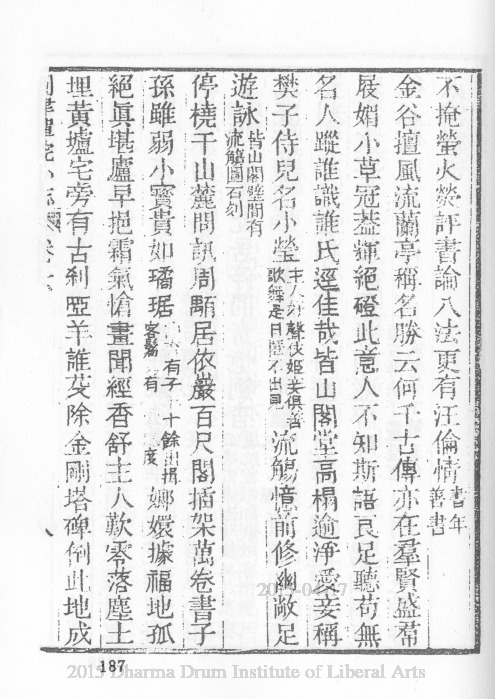 不掩螢火熒評書論八法更有汪倫情書年善書
金谷擅風流蘭亭稱名勝云何千古傳亦在羣賢盛希
屐媚小草冠蓋輝絕磴此意人不知斯語良足聽苟無
名人蹤誰識誰氏逕佳哉皆山閣堂高榻逾淨愛妾稱
樊子侍兒名小瑩主人好聲伎姬妾俱善歌舞是日隱不出見流觴憶前修幽敞足
遊詠皆山閣壁間有流觴圖石刻
停橈千山麓問訊周顒居依巖百尺閣插架萬卷書子
孫雖弱小寶貴如璠琚有子十餘嫏嬛據福地孤
絕眞堪廬早挹霜氣愴晝聞經香舒主人歎零落塵土
埋黃壚宅旁有古刹啞羊誰芟除金剛塔碑倒此地成
八
187
2015 Dharma Drum Institute of Liberal Arts